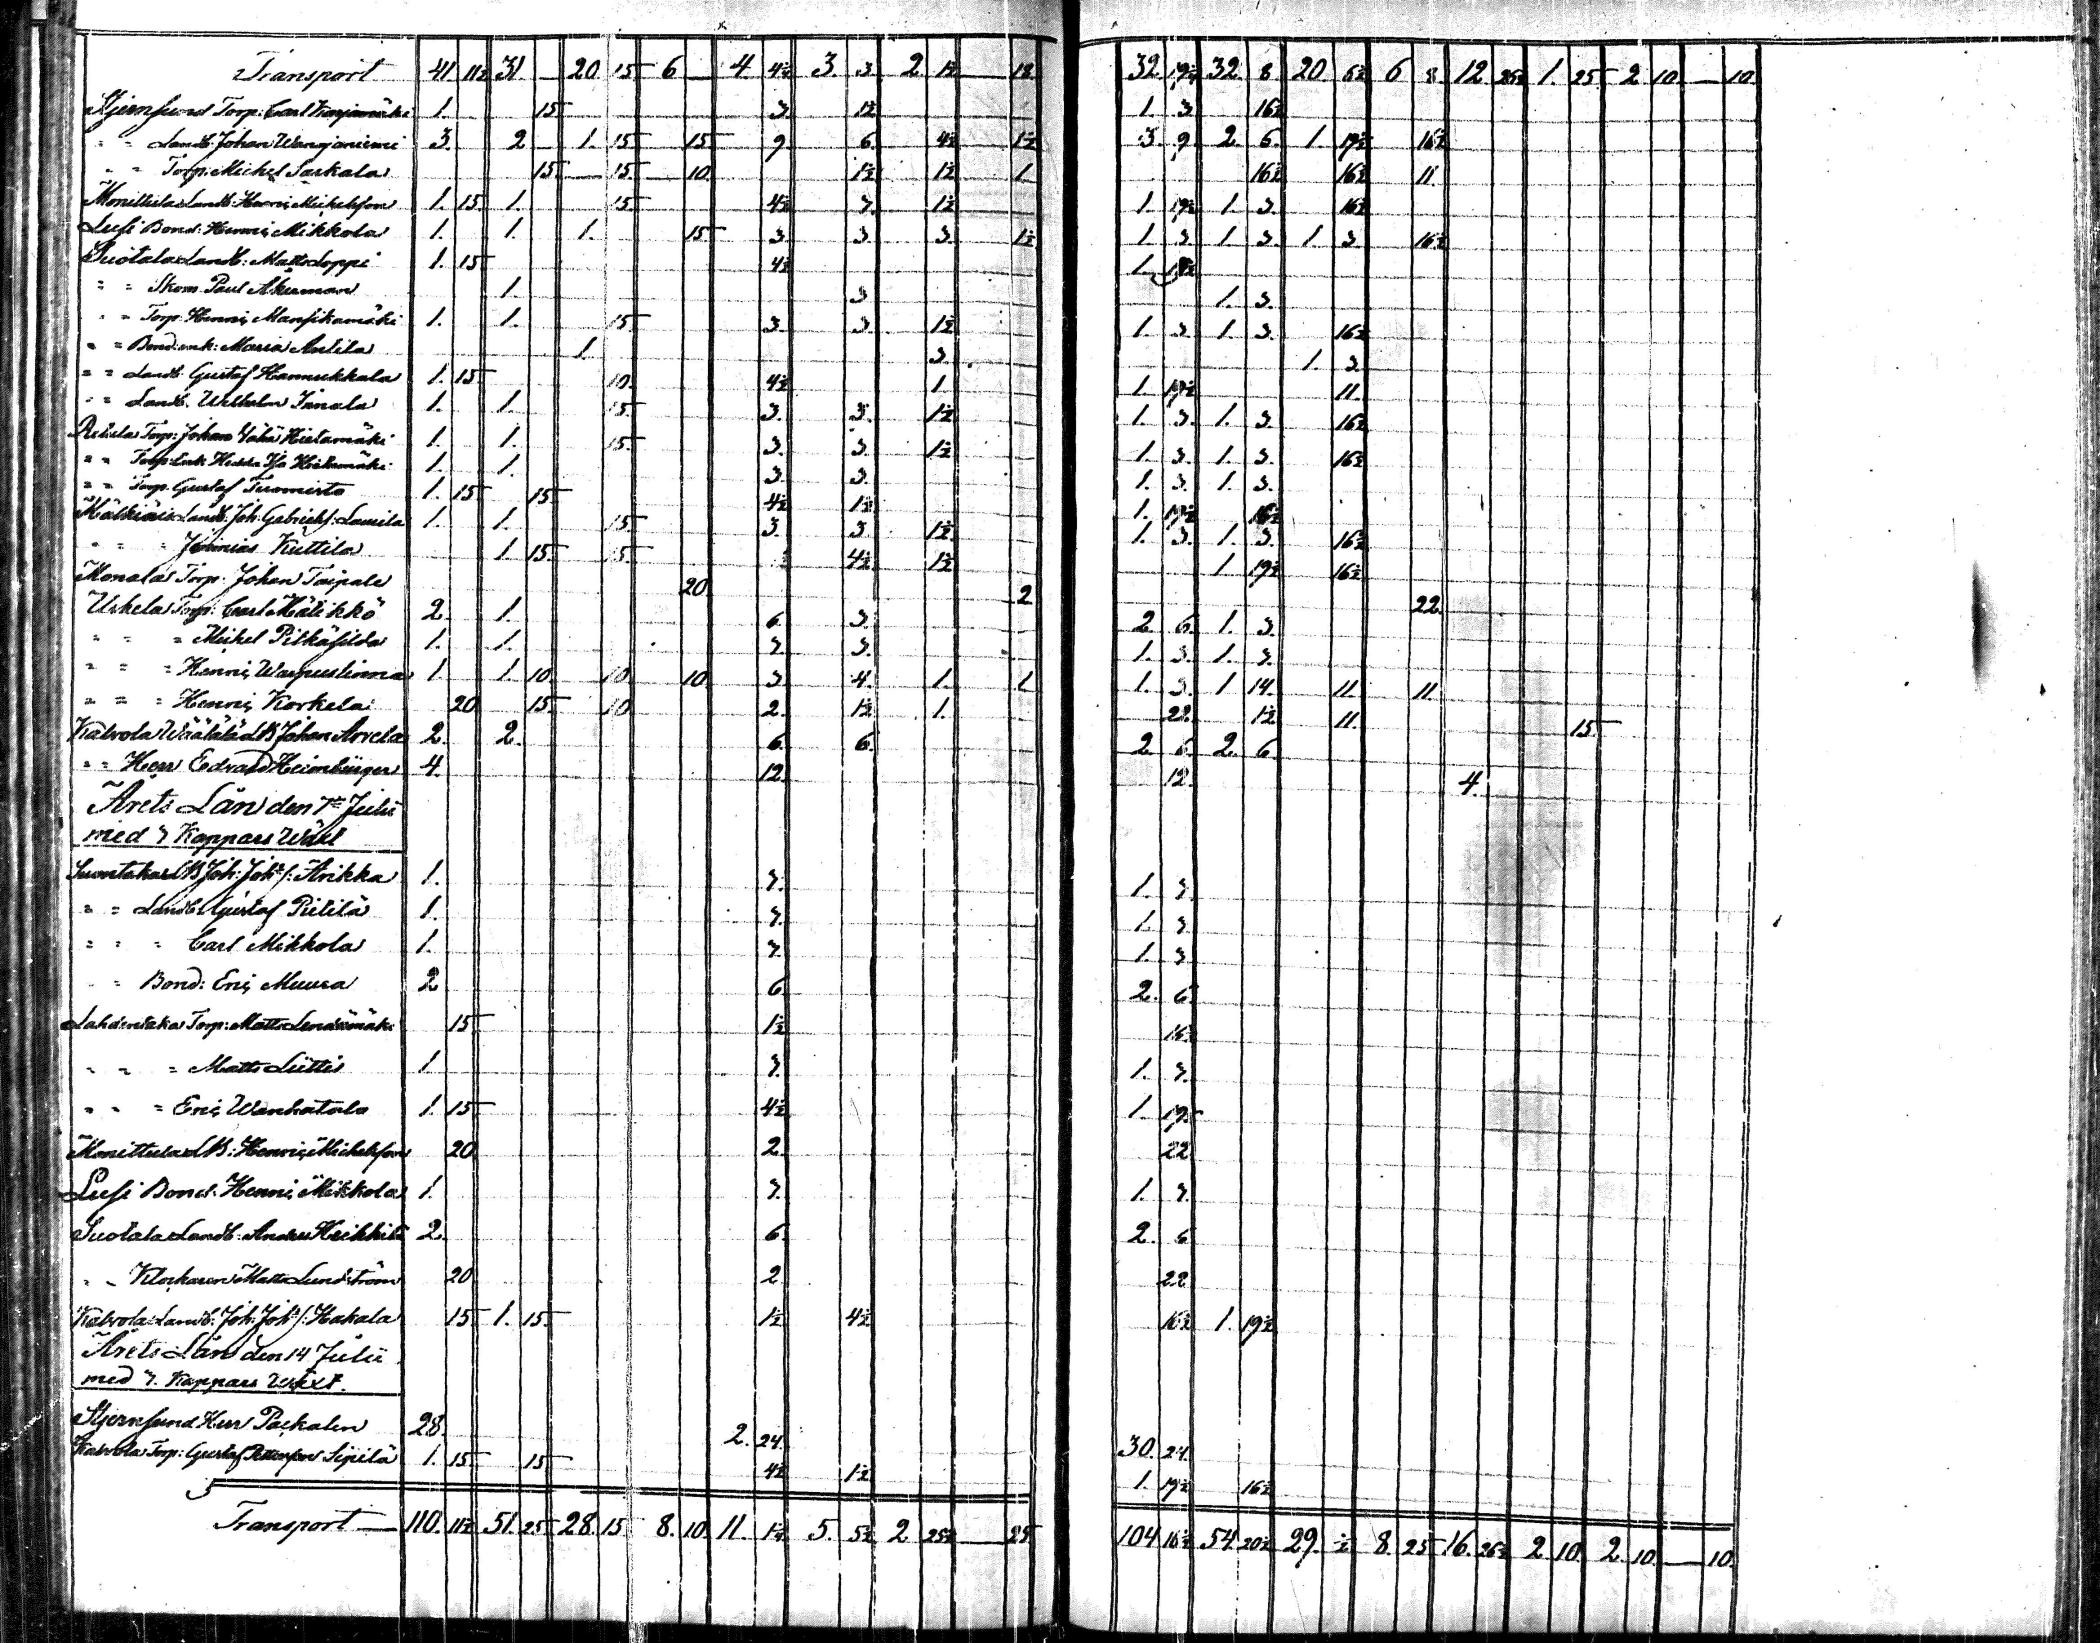 Transport 41 11½ 31 — 20 15 6 — 4 4½ 3 3 2 1½ — 18 32 19½ 32 8 20 5½ 6 8 12 26½ 1 25 2 10 — 10
Stjernsund Torp: Carl 1. 15 3 1½ 1. 3 16½
" " Landb. Johan Wanjaniemi 3. 2 1. 15 15 9 6 4½ 1½ 3. 9 2 6 1. 19½ 16½
" " Torp: Michel Sarkala 15 15 10 1½ 1½ 1 16½ 16½ 11
Monittula Landb: Henric Michelsson 1. 15 1. 15 4½ 3. 1½ 1. 19½ 1. 3. 16½
Lusi Bond: Henric Mikkola 1. 1. 1. 15 3. 3. 3. 1½ 1. 3. 1. 3. 1. 3. 16½
Suotala Landb: Matts Loppi 1. 15 4½ 1. 19½
" " Skom. Paul Åkerman 1. 3 1. 3.
" " Torp. Henric Mansikamäki 1. 1. 15 3. 3. 1½ 1. 3. 1. 3. 16½
" " Bond:enk: Maria Antila 1. 3. 1. 3.
" " Landb. Gustaf Hannukkala 1. 15 10. 4½ 1. 1. 19½ 11.
" " Landb. Wilhelm Janala 1. 1. 15 3. 3. 1½ 1. 3. 1. 3. 16½
Torp: Johan Yähä Hietamäki 1. 1. 15 3. 3. 1½ 1. 3. 1. 3. 16½
" " Torp: Enk Hedda Hietamäki 1. 1. 3. 3. 1. 3. 1. 3.
" " Torp. Gustaf Tuomisto 1. 15 15 4½ 1½ 1. 19½ 16½
Landb. Joh: Gabrielss: Laurila 1. 1. 15 3. 3. 1½ 1. 3. 1. 3. 16½
" " " Jeremias Kuttila 1. 15 15 4½ 1½ 1 19½ 16½
Monala Torp: Johan Taipale 20 2 22.
Uskela Torp: Carl Mälikkö 2. 1. 6. 3. 2. 6. 1. 3.
" " " Michel Pitkäsilda 1. 1. 3. 3. 1. 3. 1. 3.
" " " Henric Warpuslinna 1 1 10 10 10 3. 4. 1. 1 1. 3. 1 14. 11. 11.
" " " Henric Korkela 20 15 10 2. 1½ 1. 22. 1½ 11. 15
Kalvola Wäätälä LB Johan Arvela 2. 2. 6. 6. 2. 6. 2. 6.
" " Herr Edvard Heimbürger 4. 12. 12. 4.
Årets Lån den 7de Julii
med 3 Kappars Wäxt
Suontaka LB Joh: Joh:s: Arikka 1. 3. 1. 3.
" " Landb: Gustaf Pietilä 1. 3. 1. 3
" " " Carl Mikkola 1. 3. 1. 3
" " Bond: Eric Muura 2 6. 2. 6.
Torp: Matts 15 1½ 16½
" " " Matts Liettis 1. 3. 1. 3.
" " " Eric Wanhatalo 1. 15 4½ 1. 19½
Monittula LB: Henric Michelsson 20 2. 22
Lusi Bond: Henric Mikkola 1. 3. 1. 3.
Suotala Landb: Anders Heikkilä 2. 6. 2. 6
" " Klockaren Matts Lundström 20 2 22
Kalvola Landb: Joh: Joh:s: Hakala 15 1. 15 1½ 4½ 16½ 1. 19½
Årets Lån den 14 Julii
med 3. Kappars Wäxt.
Stjernsund Herr Packalen 28. 2. 24. 30. 24.
Kalvola Torp: Gustaf Pettersson Sipilä 1. 15 15 4½ 1½ 1. 19½ 16½
Transport — 110 11½ 51 25 28 15 8. 10. 11. 1½ 5. 5½ 2 25½ — 25 104 16½ 54 20½ 29. ½ 8. 25 16. 26½ 2 10. 2. 10. — 10.